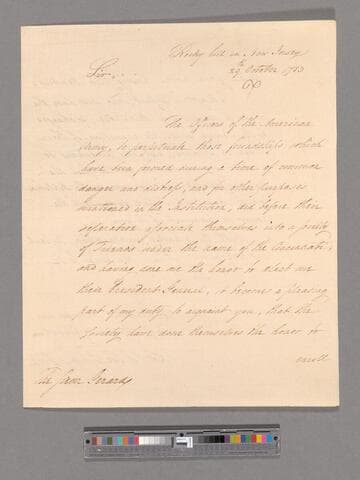 Rocky hill in New Jersey
29th October 1783
Sir,
The Officers of the American
Army, to perpetuate those friendships which
have been formed during a time of common
danger and distress, and for other purposes
mentioned in the Institution, did before their
separation associate themselves into a society
of Friends under the name of the Cincinnati;
and having done me the honor to elect me
their President General, it becomes a pleasing
part of my duty to acquaint you, that the
Society have done themselves the honor to
enroll